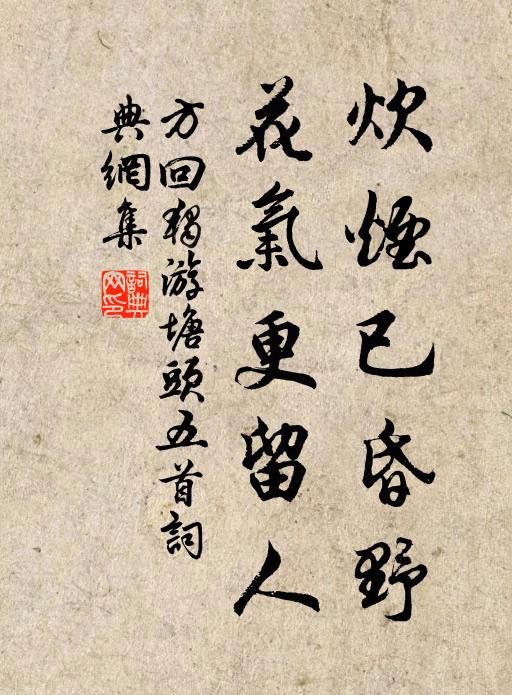 炊煙已昏野
花氣更留人
方回獨游塘頭五首詞
典網集
詞典網印